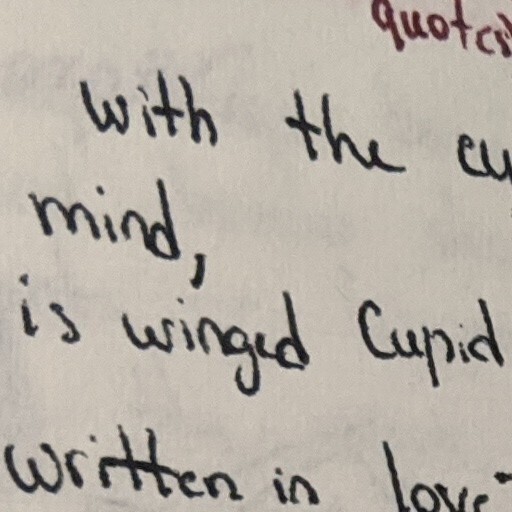 quotes
with the
mind,
is winged Cupid
written in love